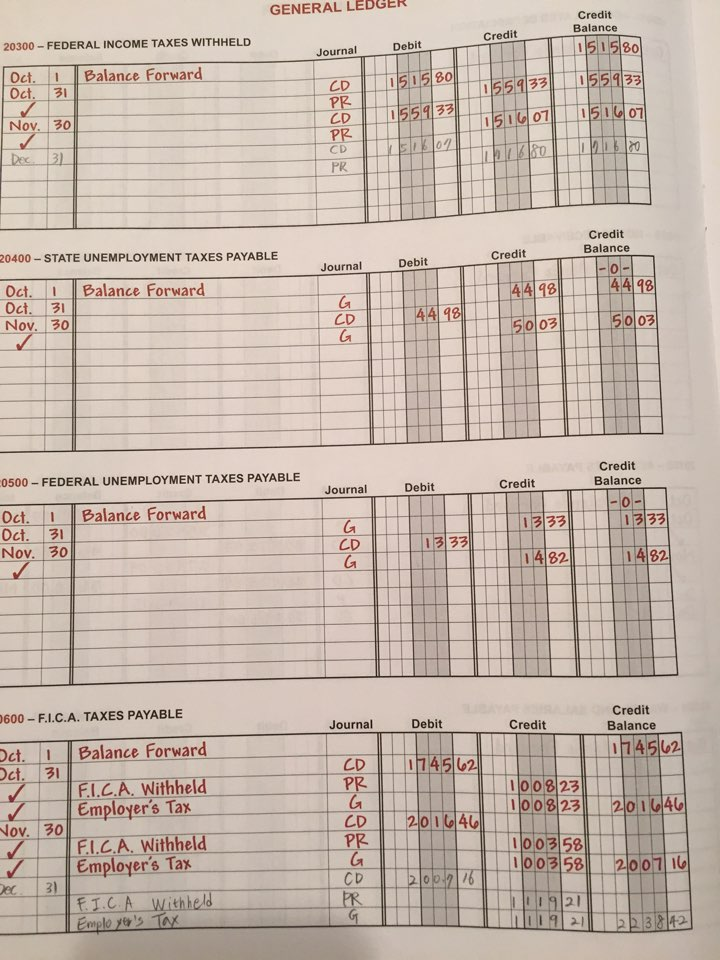 GENERAL LEDGER
20300 – FEDERAL INCOME TAXES WITHHELD Journal Debit Credit Credit Balance
Oct. 1 Balance Forward 1515 80
Oct. 31 CD 1515 80
✓ PR 1559 33 1559 33
Nov. 30 CD 1559 33
✓ PR 1516 07 1516 07
Dec. 31 CD 1516 07
PR 1716 80 1716 80
20400 – STATE UNEMPLOYMENT TAXES PAYABLE Journal Debit Credit Credit Balance
Oct. 1 Balance Forward -0-
Oct. 31 G 44 98 44 98
Nov. 30 CD 44 98
✓ G 50 03 50 03
0500 – FEDERAL UNEMPLOYMENT TAXES PAYABLE Journal Debit Credit Credit Balance
Oct. 1 Balance Forward -0-
Oct. 31 G 13 33 13 33
Nov. 30 CD 13 33
✓ G 14 82 14 82
0600 – F.I.C.A. TAXES PAYABLE Journal Debit Credit Credit Balance
Oct. 1 Balance Forward 1745 62
Oct. 31 CD 1745 62
✓ F.I.C.A. Withheld PR 1008 23
✓ Employer's Tax G 1008 23 2016 46
Nov. 30 CD 2016 46
✓ F.I.C.A. Withheld PR 1003 58
✓ Employer's Tax G 1003 58 2007 16
Dec. 31 CD 2007 16
F.I.C.A Withheld PR 1119 21
Employer's Tax G 1119 21 2238 42